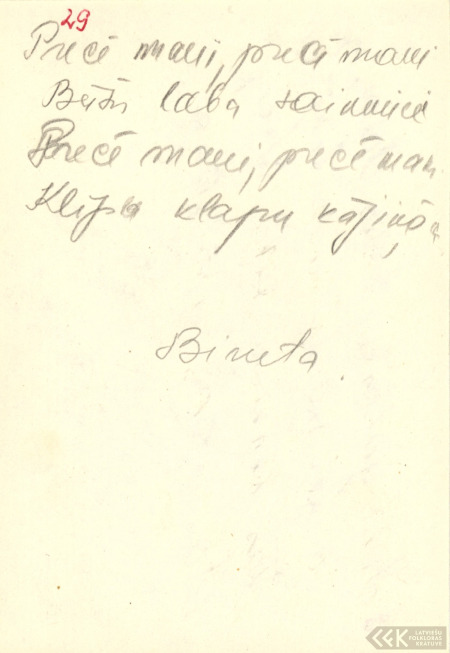 29
Precē mani, precē mani
Būšu laba saimniece
Precē mani, precē man
Klipu klapu kājiņā
Biruta
LATVIEŠU
FOLKLORAS
KRĀTUVE